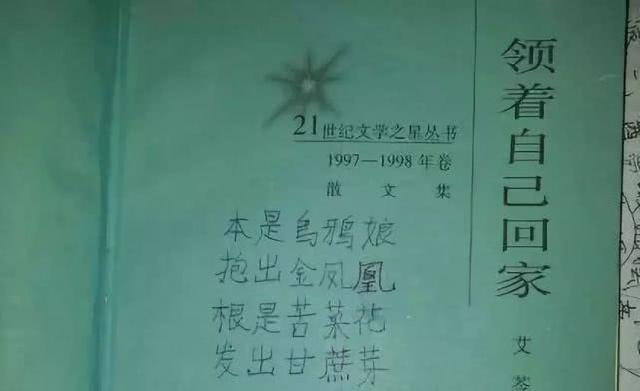 领着自己回家
艾苓
21世纪文学之星丛书
1997—1998年卷
散文集
本是乌鸦娘
抱出金凤凰
根是苦菜花
发出甘蔗芽